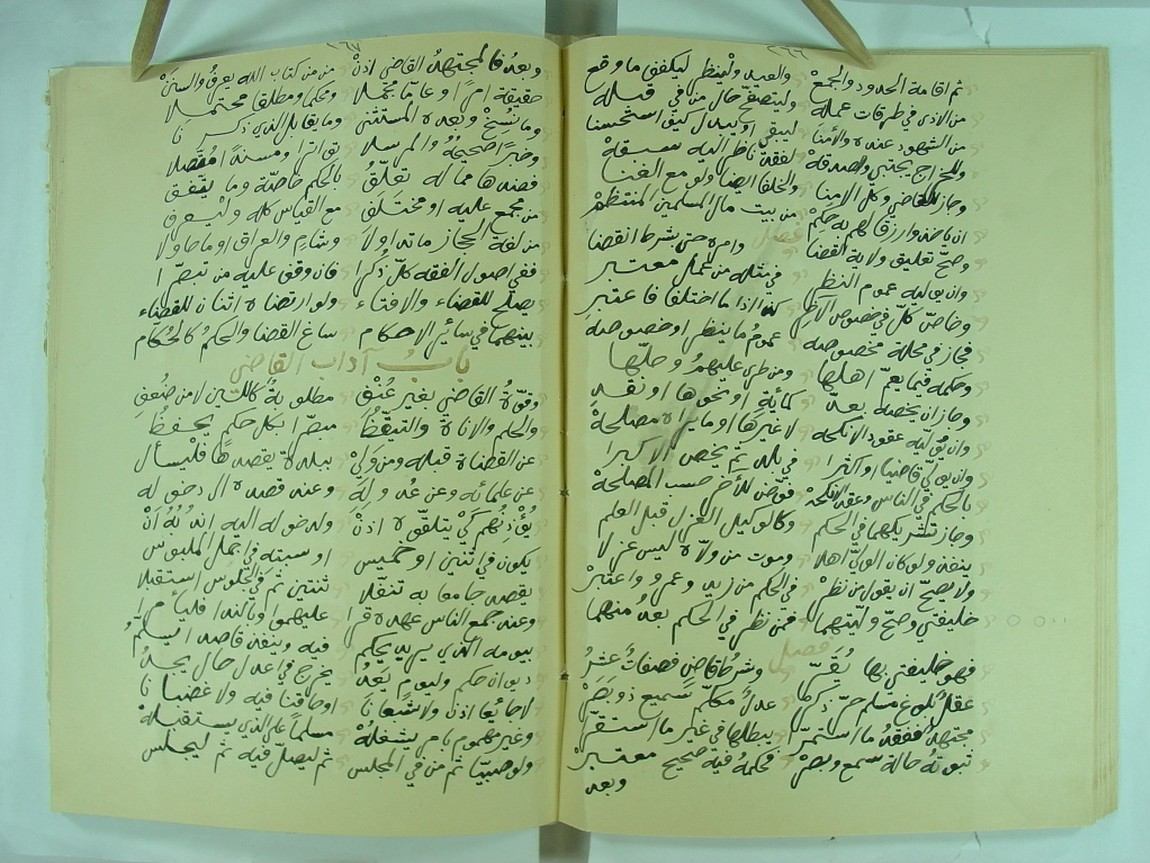 ٢٦٦
ثم اقامة الحدود والجمع والعيد ولينظر ليكفف ما وقع
من الاذى في طرقات عمله وليتصفح حال من في قبله
من الشهود عنده والأمنا ليبقي او يبدل كيف استحسنا
وللخراج يجتبي والصدقة لفقد ناظر اليه سبقة
وجاز للقاضي وكل الامنا والخلفا ايضا ولو مع الغنا
ان ياخذوا رزقا لهم به حكم من بيت مال المسلمين المنتظم
فصل
وصح تعليق ولاية القضا وامرة حتى بشرط انقضا
وان يوليه عموم النظر في مثله من عمل معتبر
وخاص كل في خصوص الآخر كذا اذا ما اختلفا فاعتبر
فجاز في محلة مخصوصه عموم ما ينظر او خصوصه
وحكمه فيما يعم اهلها ومن طرى عليهم وحلها
وجاز ان يخصه بعد كمأية او نحوها او نقد
وان توليه عقود الانكحه لا غيرها او ما يراه مصلحة
وان يولي قاضيا او اكثرا في بلد ثم يخص الاكبرا
بالحكم في الناس وعقد الانكحة فوض للآخر حسب المصلحة
وجاز تشريكهما في الحكم وكالوكيل العزل قبل العلم
ينفذ ولو كان الولي اهلا وموت من ولاه ليس عزلا
ولا يصح ان يقول من نظر في الحكم من زيد وعمرو واعتبر
خليفتي وصح وليتهما فمن نظر في الحكم بعد منهما
فصل
فهو خليفتي بها يقر وشرط قاض فصفات عشر
عقل بلوغ مسلم حر ذكر عدل مكلم سميع ذو بصر
مجتهد ففقد ما استمر يبطلها في غير ما استقر
ثبوته حالة سمع وبصر فحكمه فيه صحيح معتبر
وبعد
٢٦٧
وبعد فالمجتهد القاضي اذن من من كتاب الله يعرف والسنن
حقيقة امرا وعاما مجملا ومحكما ومطلقا محتملا
وما نسخ وبعده المستثنى وما يقابل الذي ذكرنا
وخبرا صحيحه والمرسلا تواترا ومسندا مفصلا
فصد هما مما له تعلق بالحكم خاصة وما يتفق
من مجمع عليه او مختلف مع القياس كله وليعرف
من لغة الحجاز ما تداولا وشام والعراق او ما حاولا
ففي اصول الفقه كل ذكرا فان وقف عليه من تبصرا
يصلح للقضاء والافتاء ولو ارتضاه اثنان للقضاء
بينهما في سائر الاحكام ساغ القضا والحكم كالحكام
باب آداب القاضي
وقوة القاضي بغير عنف مطلوبة كاللين لا من ضعف
والحلم والاناة والتيقظ مبصرا بكل حكم يحفظ
عن القضاة قبله ومن ولي ببلدة يقصدها فليسأل
عن علمائه وعن عدوله وعند قصده ال دخوله
يؤذنهم كي يتلقوه اذن ولدخوله اليه اندبه أن
يكون في اثنين او خميس او سبته في اجمل الملبوس
يقصد جامعا به تنفلا ثنتين ثم في الجلوس استقبلا
وعند جمع الناس عهده قرا عليهموا وبالندا فليأمرا
بيومه الذي يريد يحكم فيه وينفذ قاصدا يسلم
ديوان حكم وليوم يعد يخرج في اعدل حال يجد
لا جائعا اذن ولا شبعانا او حاقنا فيه ولا غضبانا
وغير مهموم بامر يشغله مسلما على الذي يستقبله
ولو صبيا ثم من في المجلس ثم ليصل فيه ثم ليجلس